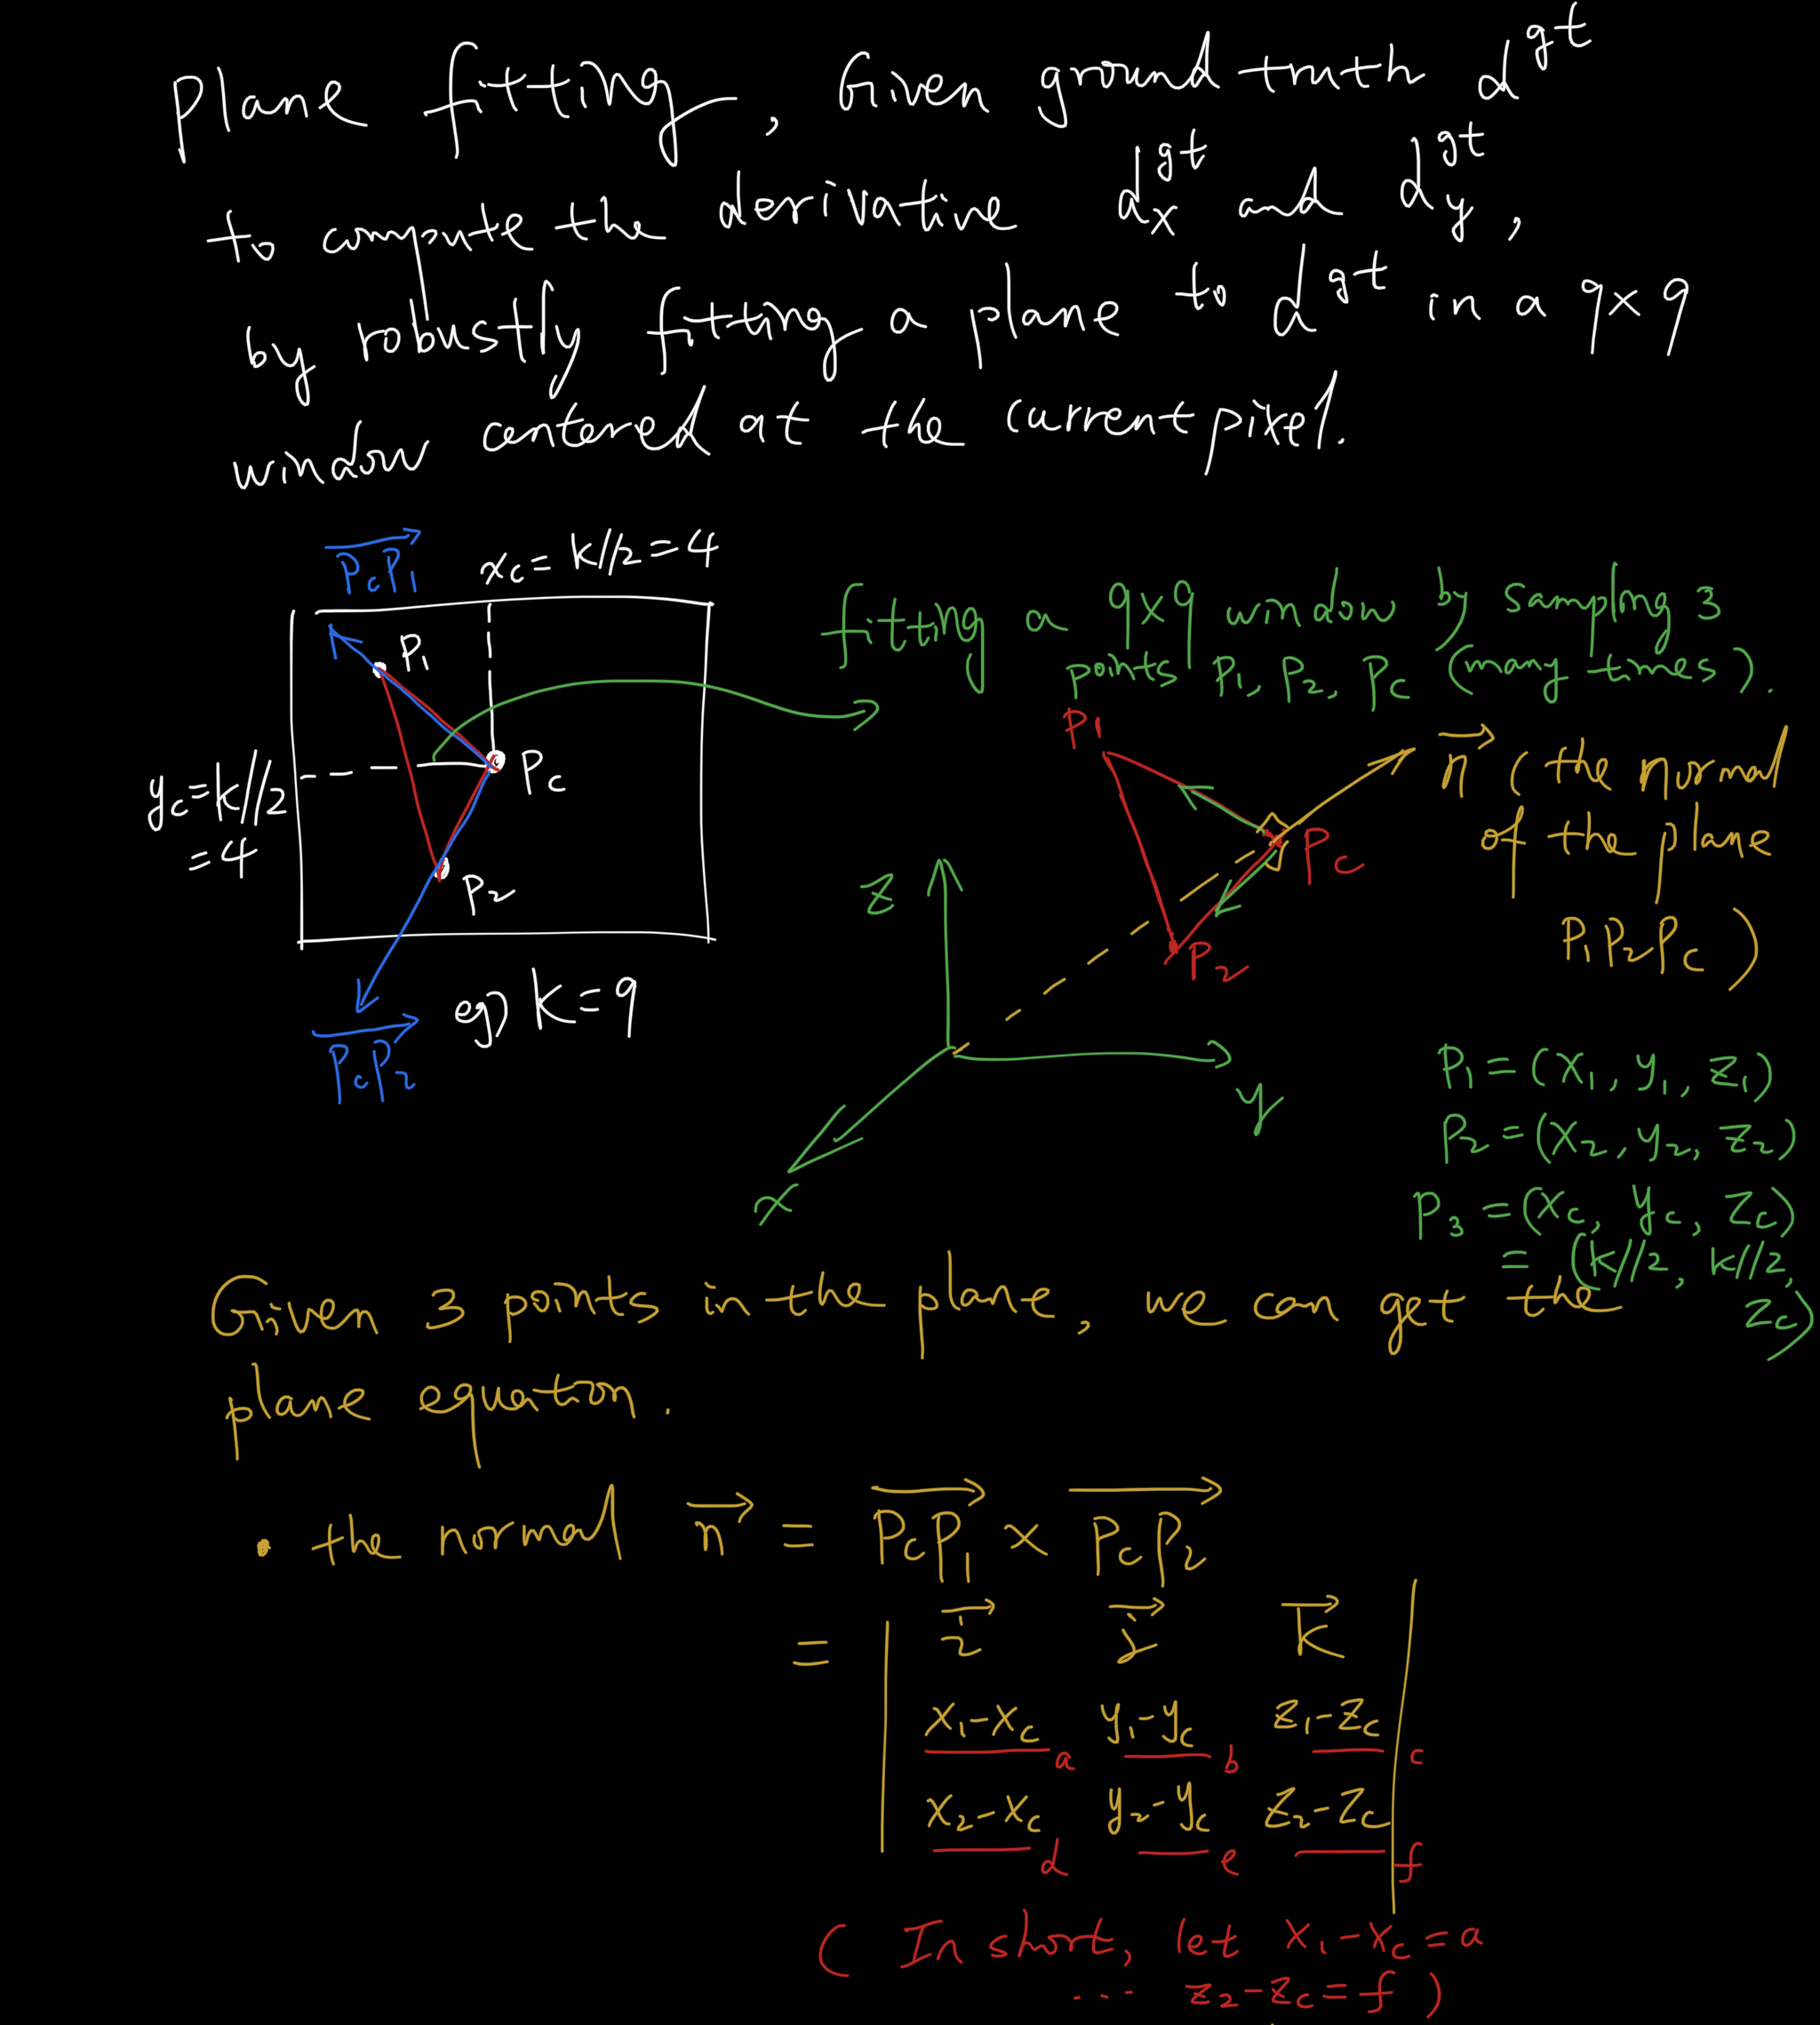 Plane fitting, Given ground truth d^gt
to compute the derivative d_x^gt and d_y^gt,
by robustly fitting a plane to d^gt in a 9×9
window centered at the current pixel.
PcP1
xc = k//2 = 4
P1
yc = k//2
= 4
Pc
P2
PcP2
eg) k = 9
fitting a 9×9 window by sampling 3
points P1, P2, Pc (many times).
P1
Pc
P2
n (the normal
of the plane
P1P2Pc)
z
y
x
P1 = (x1, y1, z1)
P2 = (x2, y2, z2)
P3 = (xc, yc, zc)
= (k//2, k//2,
zc)
Given 3 points in the plane, we can get the
plane equation.
• the normal n = PcP1 × PcP2
= | i j k
x1-xc a y1-yc b z1-zc c
x2-xc d y2-yc e z2-zc f |
( In short, let x1-xc = a
... z2-zc = f )